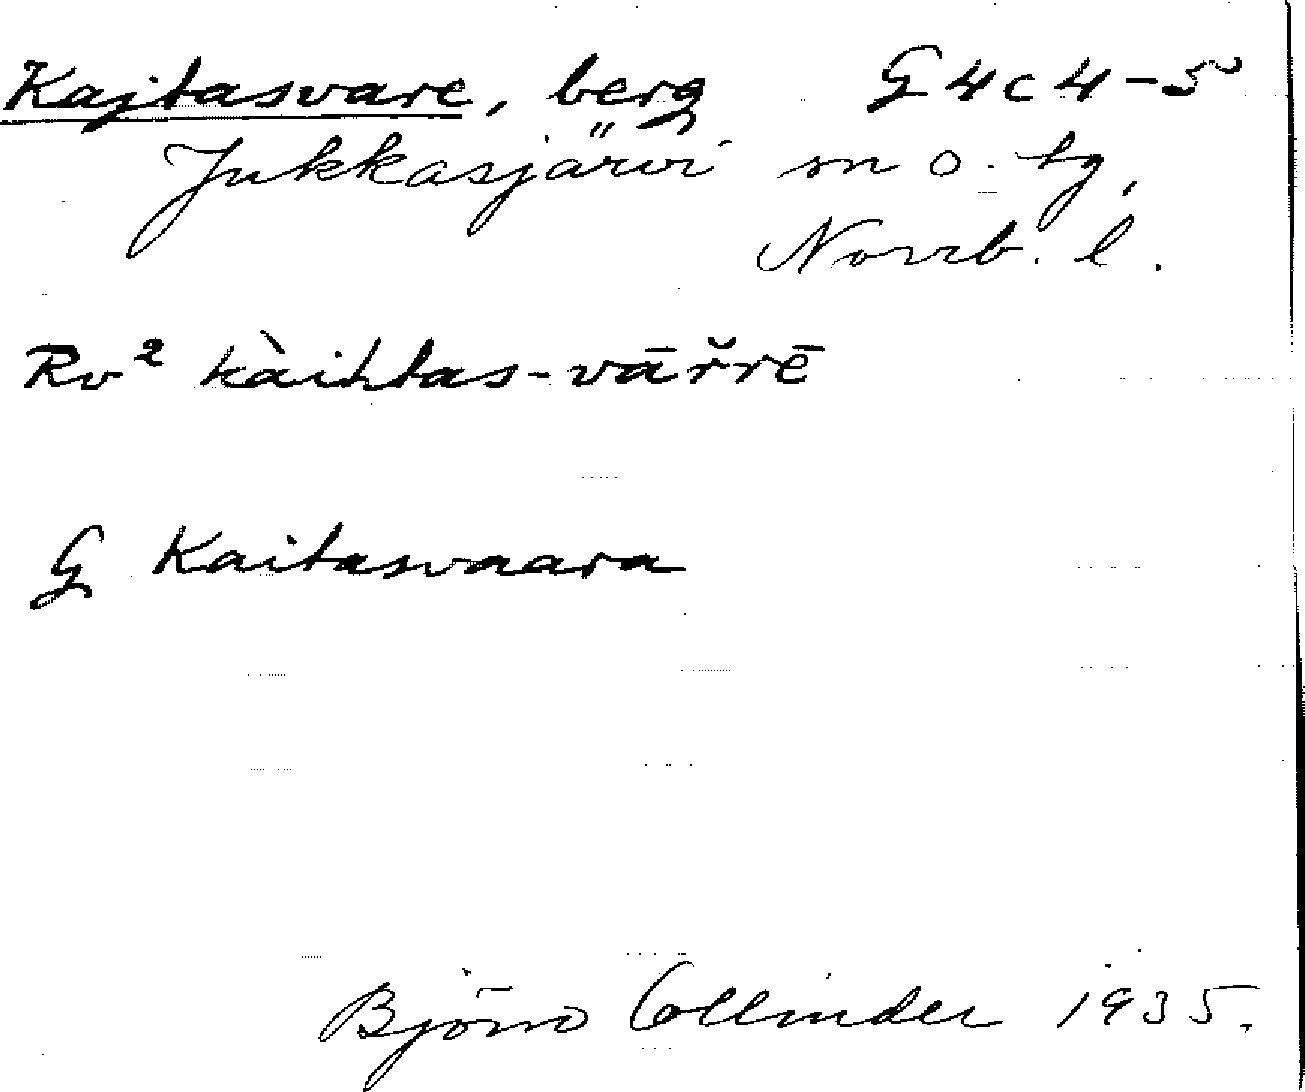 Kajtasvare, berg G 4 c 4-5
Jukkasjärvi sn o. tg,
Norrb. l.
Rv² kàihtas-vāřrē
G Kaitasvaara
Björn Collinder 1935.